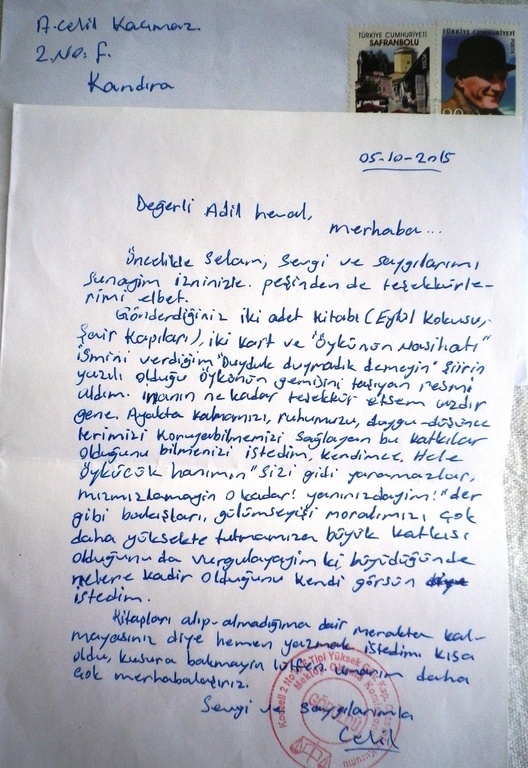 A.Celil Kaçmaz
2.No.F.
Kandıra
TÜRKİYE CUMHURİYETİ
SAFRANBOLU
TÜRKİYE CUMHURİYETİ
05-10-2015
Değerli Adil heval,
merhaba...
Öncelikle selam, sevgi ve saygılarımı
sunayım izninizle. peşinden de teşekkürle-
rimi elbet.
Gönderdiğiniz iki adet kitabı (Eylül Kokusu,
Şair Kapıları), iki kart ve "Öykünün Nasihatı"
ismini verdiğim "Duyduk duymadık demeyin" şiirin
yazılı olduğu Öykünün gemisini taşıyan resmi
aldım. inanın ne kadar teşekkür etsem azdır
gene. Ayakta kalmamızı, ruhumuzu, duygu-düşünce
lerimizi koruyabilmemizi sağlayan bu katkılar
olduğunu bilmenizi istedim, kendimce. Hele
Öykücük hanımın "Sizi gidi yaramazlar,
mızmızlamayın o kadar! yanınızdayım!" der
gibi bakışları, gülümseyişi moralimizi çok
daha yüksekte tutmamıza büyük katkısı
olduğunu da vurgulayayım ki büyüdüğünde
nelere kadir olduğunu kendi görsün
istedim.
Kitapları alıp-almadığıma dair merakta kal-
mayasınız diye hemen yazmak istedim kısa
oldu, kusura bakmayın lütfen. umarım daha
çok merhabalaşırız.
Sevgi ve saygılarımla
Celil
GÖRÜLDÜ